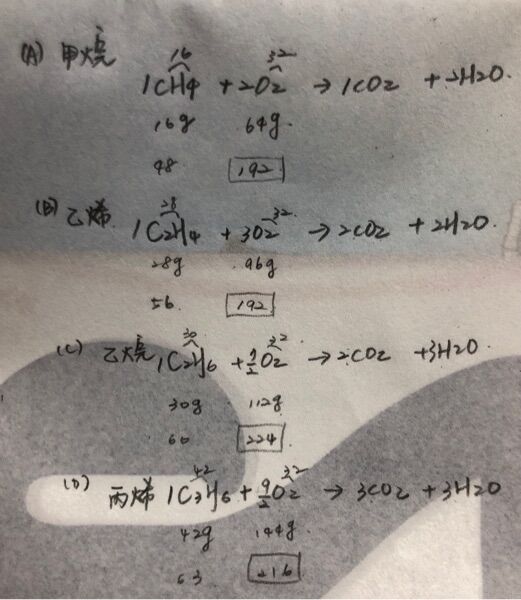 (A) 甲烷
16 32
1CH4 + 2O2 → 1CO2 + 2H2O.
16g 64g.
48 192
(B) 乙烯
28 32
1C2H4 + 3O2 → 2CO2 + 2H2O.
28g 96g
56. 192
(C) 乙烷
30 32
1C2H6 + 7/2 O2 → 2CO2 + 3H2O.
30g 112g
60 224
(D) 丙烯
42 32
1C3H6 + 9/2 O2 → 3CO2 + 3H2O
42g 144g.
63 216